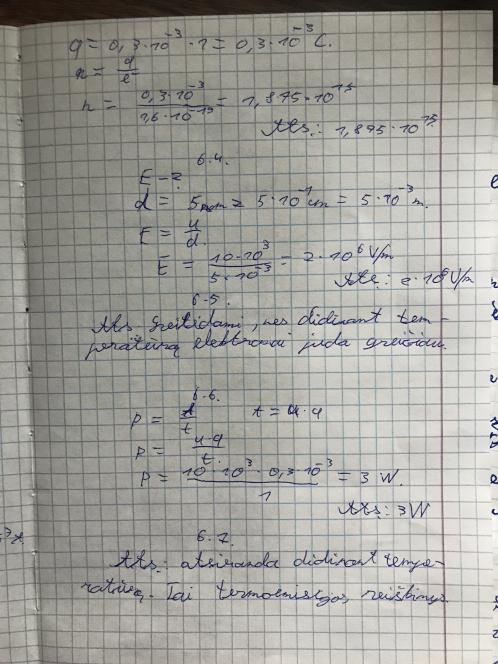 q = 0,3·10⁻³ · 1 = 0,3·10⁻³ C.
n = q/e
n = 0,3·10⁻³ / 1,6·10⁻¹⁹ = 1,875·10¹⁵
Ats.: 1,875·10¹⁵.
6.4.
E - ?
d = 5 mm = 5·10⁻¹ cm = 5·10⁻³ m.
E = u/d.
E = 10·10³ / 5·10⁻³ = 2·10⁶ V/m
Ats.: 2·10⁶ V/m
6.5.
Ats. greitėdami, nes didinant tem-
peratūrą elektronai juda greičiau.
6.6.
P = A/t A = u·q
P = u·q/t.
P = 10·10³ · 0,3·10⁻³ / 1 = 3 W.
Ats.: 3 W
6.7.
Ats.: atsiranda didinant tempe-
ratūrą. Tai termoemisijos reiškinys.